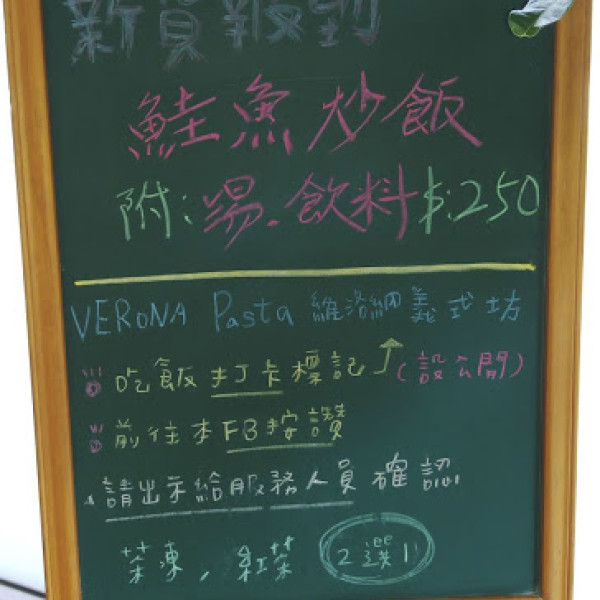 新貨報到
鮭魚炒飯
附:湯.飲料$:250
VERONA Pasta 維洛納義式坊
吃飯打卡標記↑(設公開)
前往本FB按讚
請出示給服務人員確認
茶凍,紅茶 2選1